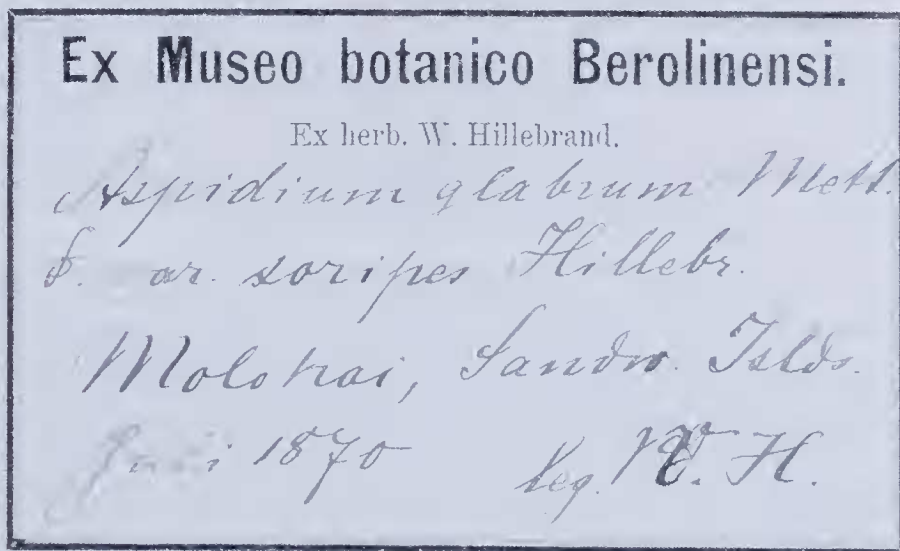 Ex Museo botanico Berolinensi.
Ex herb. W. Hillebrand.
Aspidium glabrum Mett.
ar. soripes Hillebr.
Molokai, Sandw. Islds.
1870 leg. W. H.